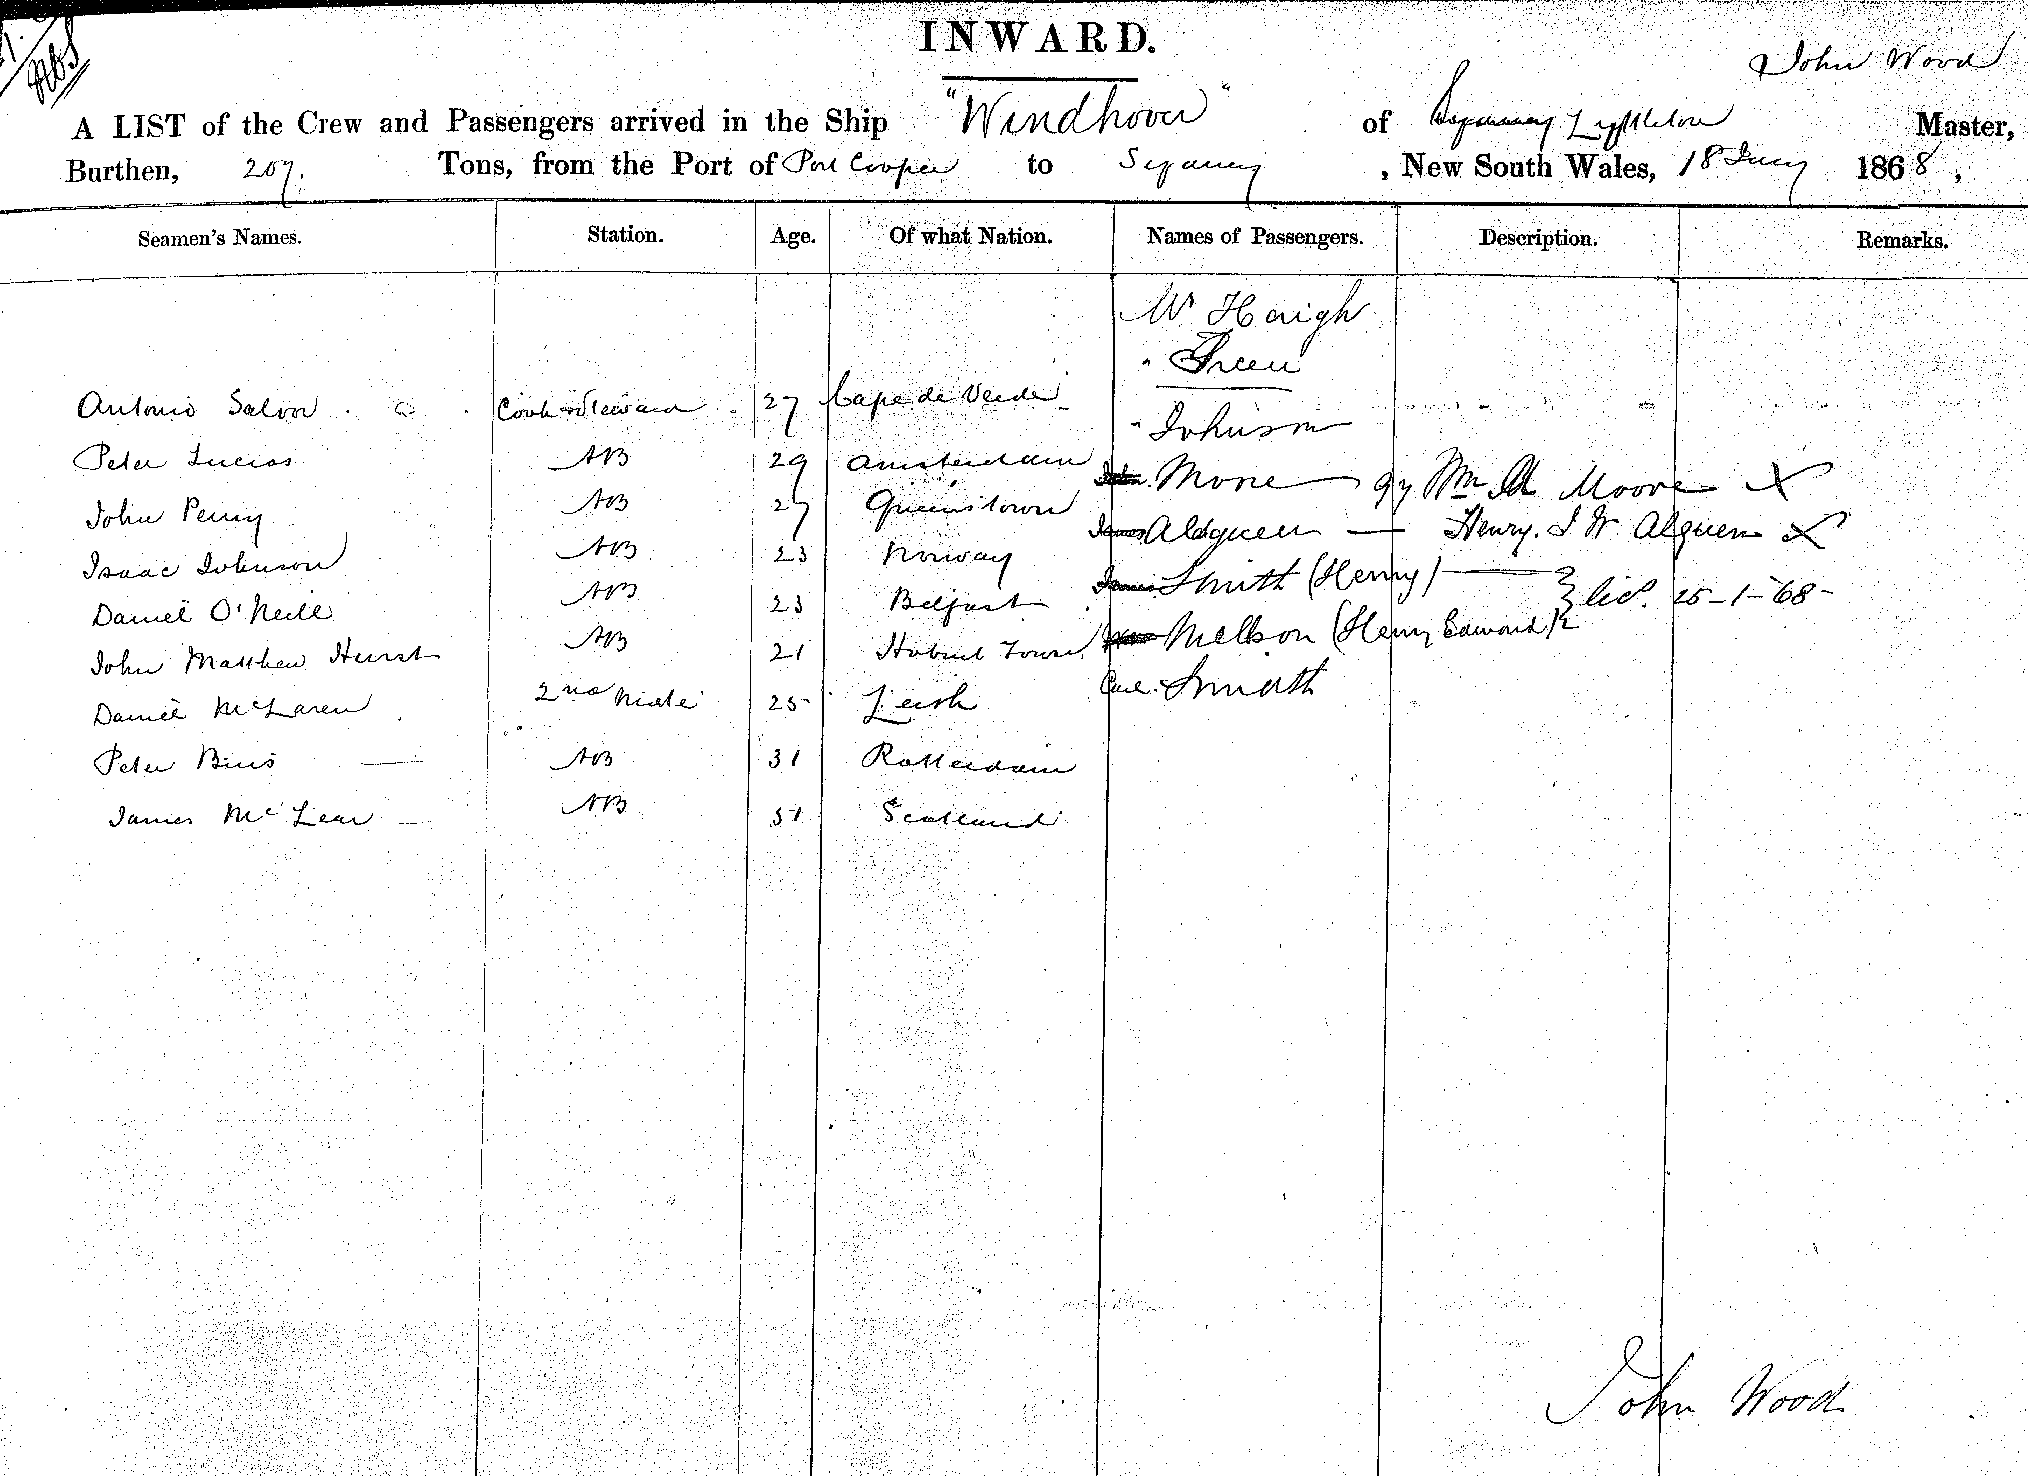 INWARD.
John Wood
A LIST of the Crew and Passengers arrived in the Ship "Windhover" of Lyttleton Master,
Burthen, 207. Tons, from the Port of Port Cooper to Sydney, New South Wales, 18 1868,
Seamen's Names. Station. Age. Of what Nation. Names of Passengers. Description. Remarks.
Mr Haigh
" Green
Antonio Salvor Cook & Steward 27 Cape de Verde
" Johnson
Peter Lucias AB 29 Amsterdam
More Wm Moore X
John Perry AB 27 Queenstown
Aldguen — Henry. J W Alguen X
Isaac Johnson AB 23 Norway
Smith (Henry)
Daniel O'Neill AB 23 Belfast
lic. 25-1-68-
John Matthew Hurst AB 21 Hobart Town
Mellson (Henry Edward)
Daniel McLaren 2nd Mate 25 Leith
Smith
Peter Bius AB 31 Rotterdam
James McLear AB 51 Scotland
John Wood